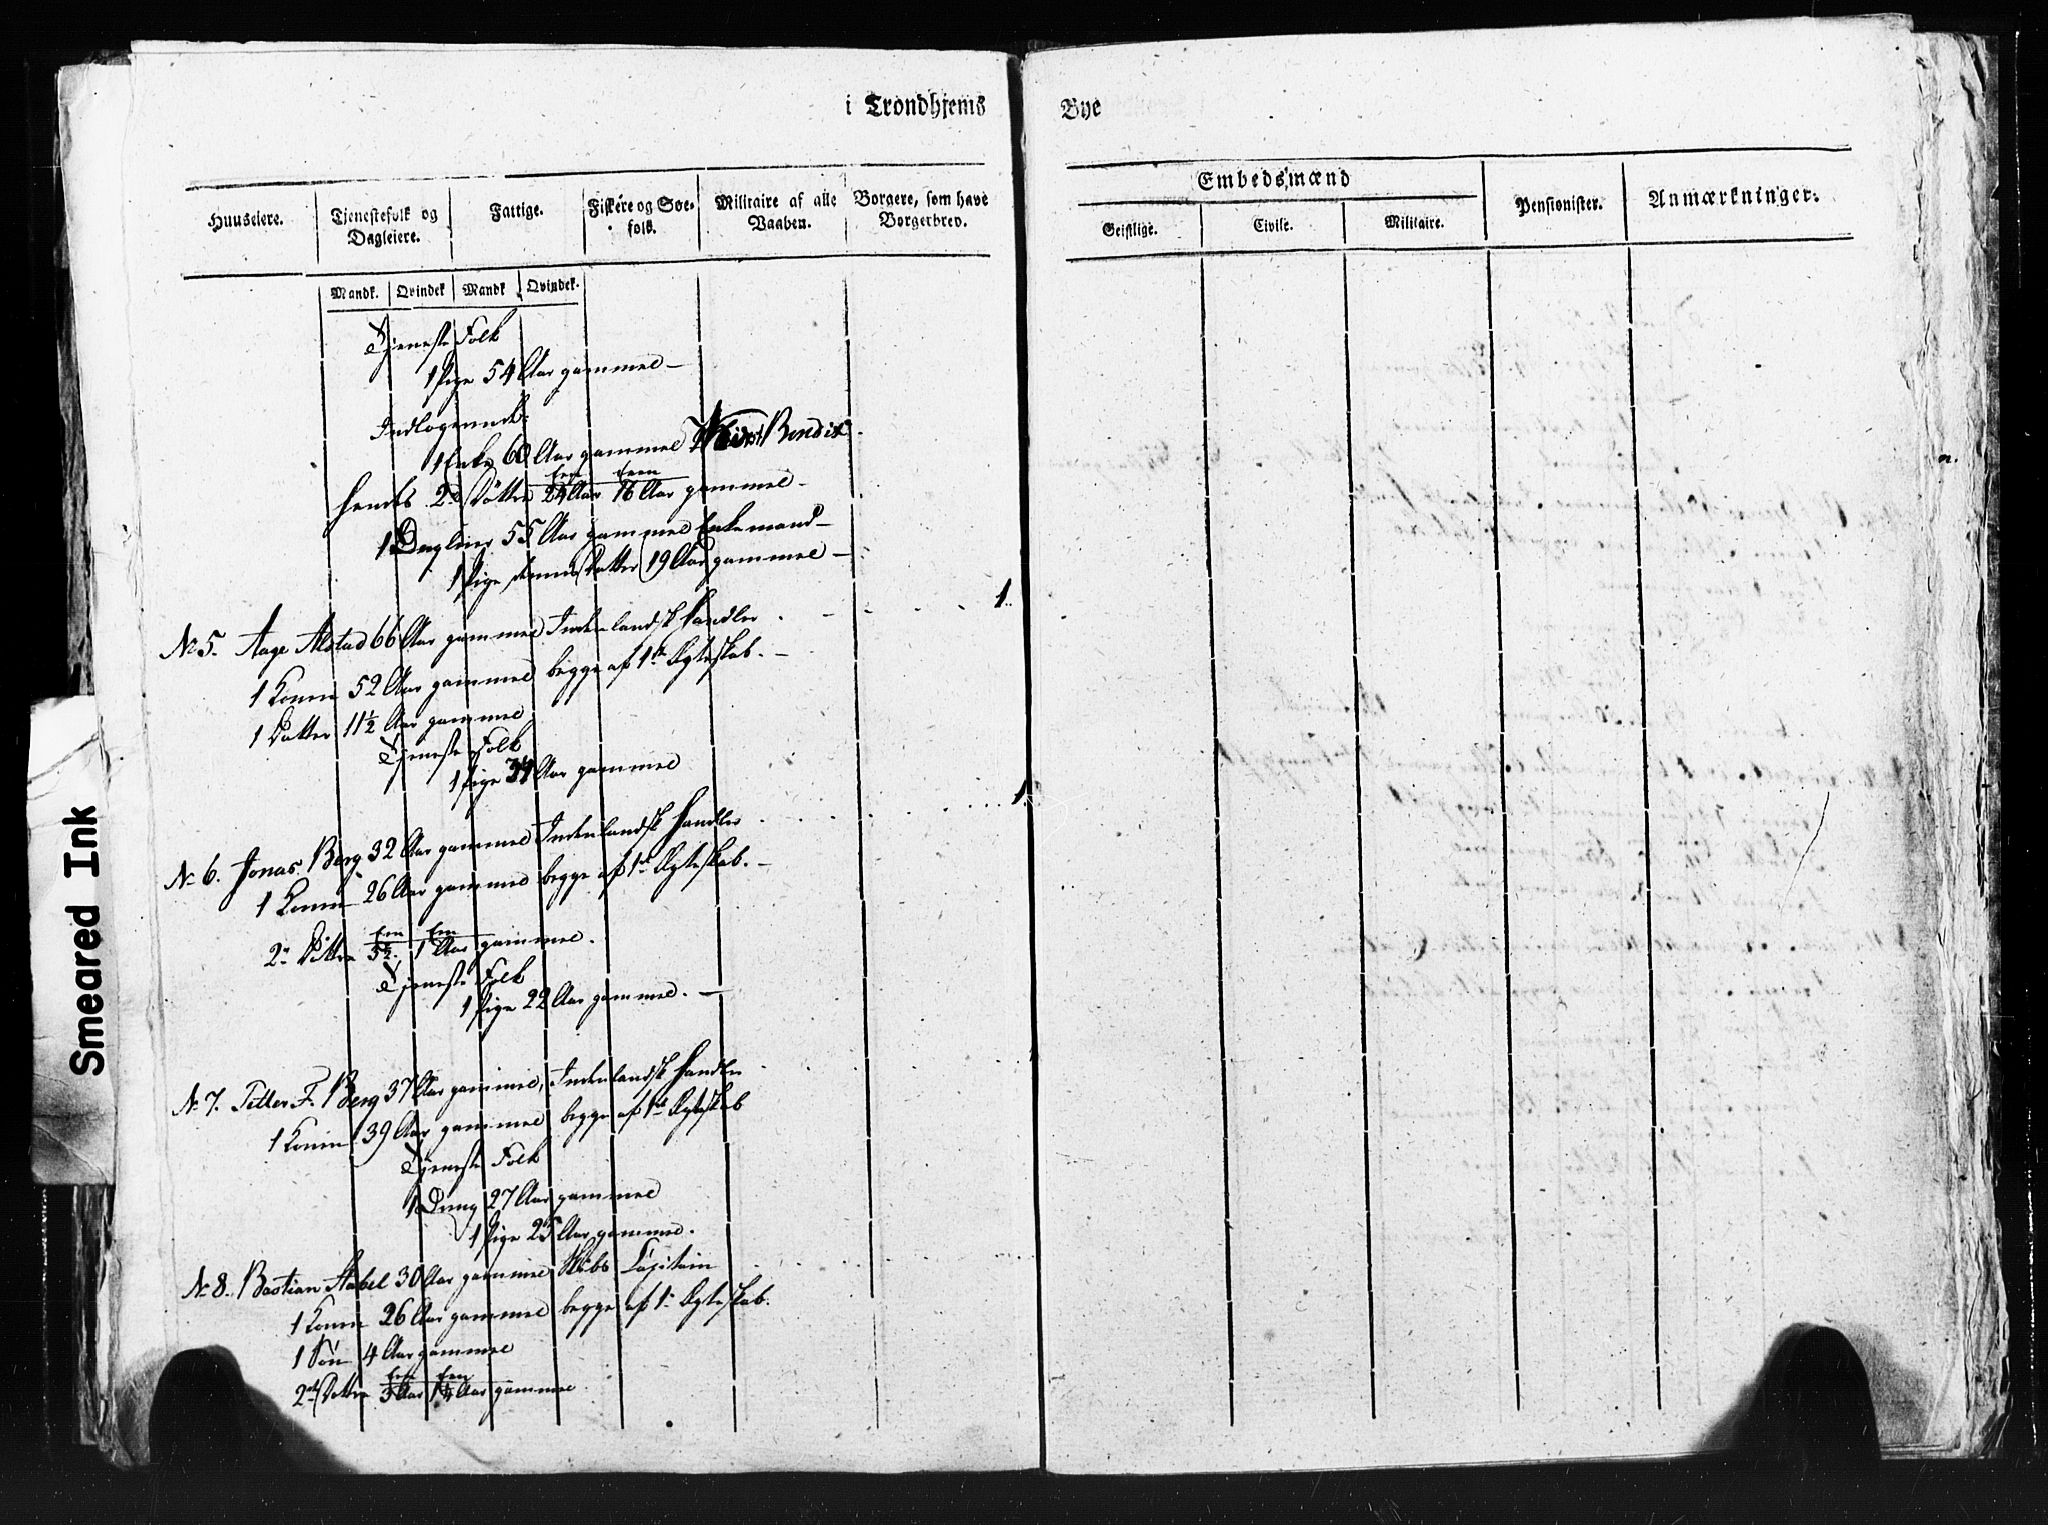 i Trondhjems Bye
Huuseiere. Tjenestefolk og Dagleiere. Fattige. Fiskere og Søefolk. Militaire af alle Vaaben. Borgere, som have Borgerbrev.
Mandk. Qvindek Mandk Qvindek.
Embedsmænd
Geistlige. Civile. Militaire. Pensionister. Anmærkninger.
Tjeneste Folk
1 Pige 54 Aar gammel —
Indlogerende.
1 Enke 60 Aar gammel Bendix
Een Een
Hendes 2de Døttre 24 Aar 16 Aar gammel -
1 Dagleier 55 Aar gammel Enkemand —
1 Pige Datter 19 Aar gammel —
No 5. Aage Alstad 66 Aar gammel Indenlandsk Handler 1
1 Kone 52 Aar gammel begge af 1ste Ægteskab. —
1 Datter 11½ Aar gammel
Tjeneste Folk
1 Pige 34 Aar gammel
No 6. Jonas Berg 32 Aar gammel Indenlandsk Handler 1
1 Kone 26 Aar gammel begge af 1ste Ægteskab. —
Een Een
2de Døttre 3½ 1 Aar gammel.
Tjeneste Folk
1 Pige 22 Aar gammel. —
No 7. Petter F. Berg 37 Aar gammel, Indenlandsk Handler
1 Kone 39 Aar gammel begge af 1ste Ægteskab
Tjeneste Folk
1 Dreng 27 Aar gammel
1 Pige 25 Aar gammel.
No 8. Bastian Stabel 30 Aar gammel Skibs Capitain
1 Kone 26 Aar gammel begge af 1ste Ægteskab.
1 Søn 4 Aar gammel
Een Een
2de Døttre 3 Aar Aar gammel
Smeared Ink